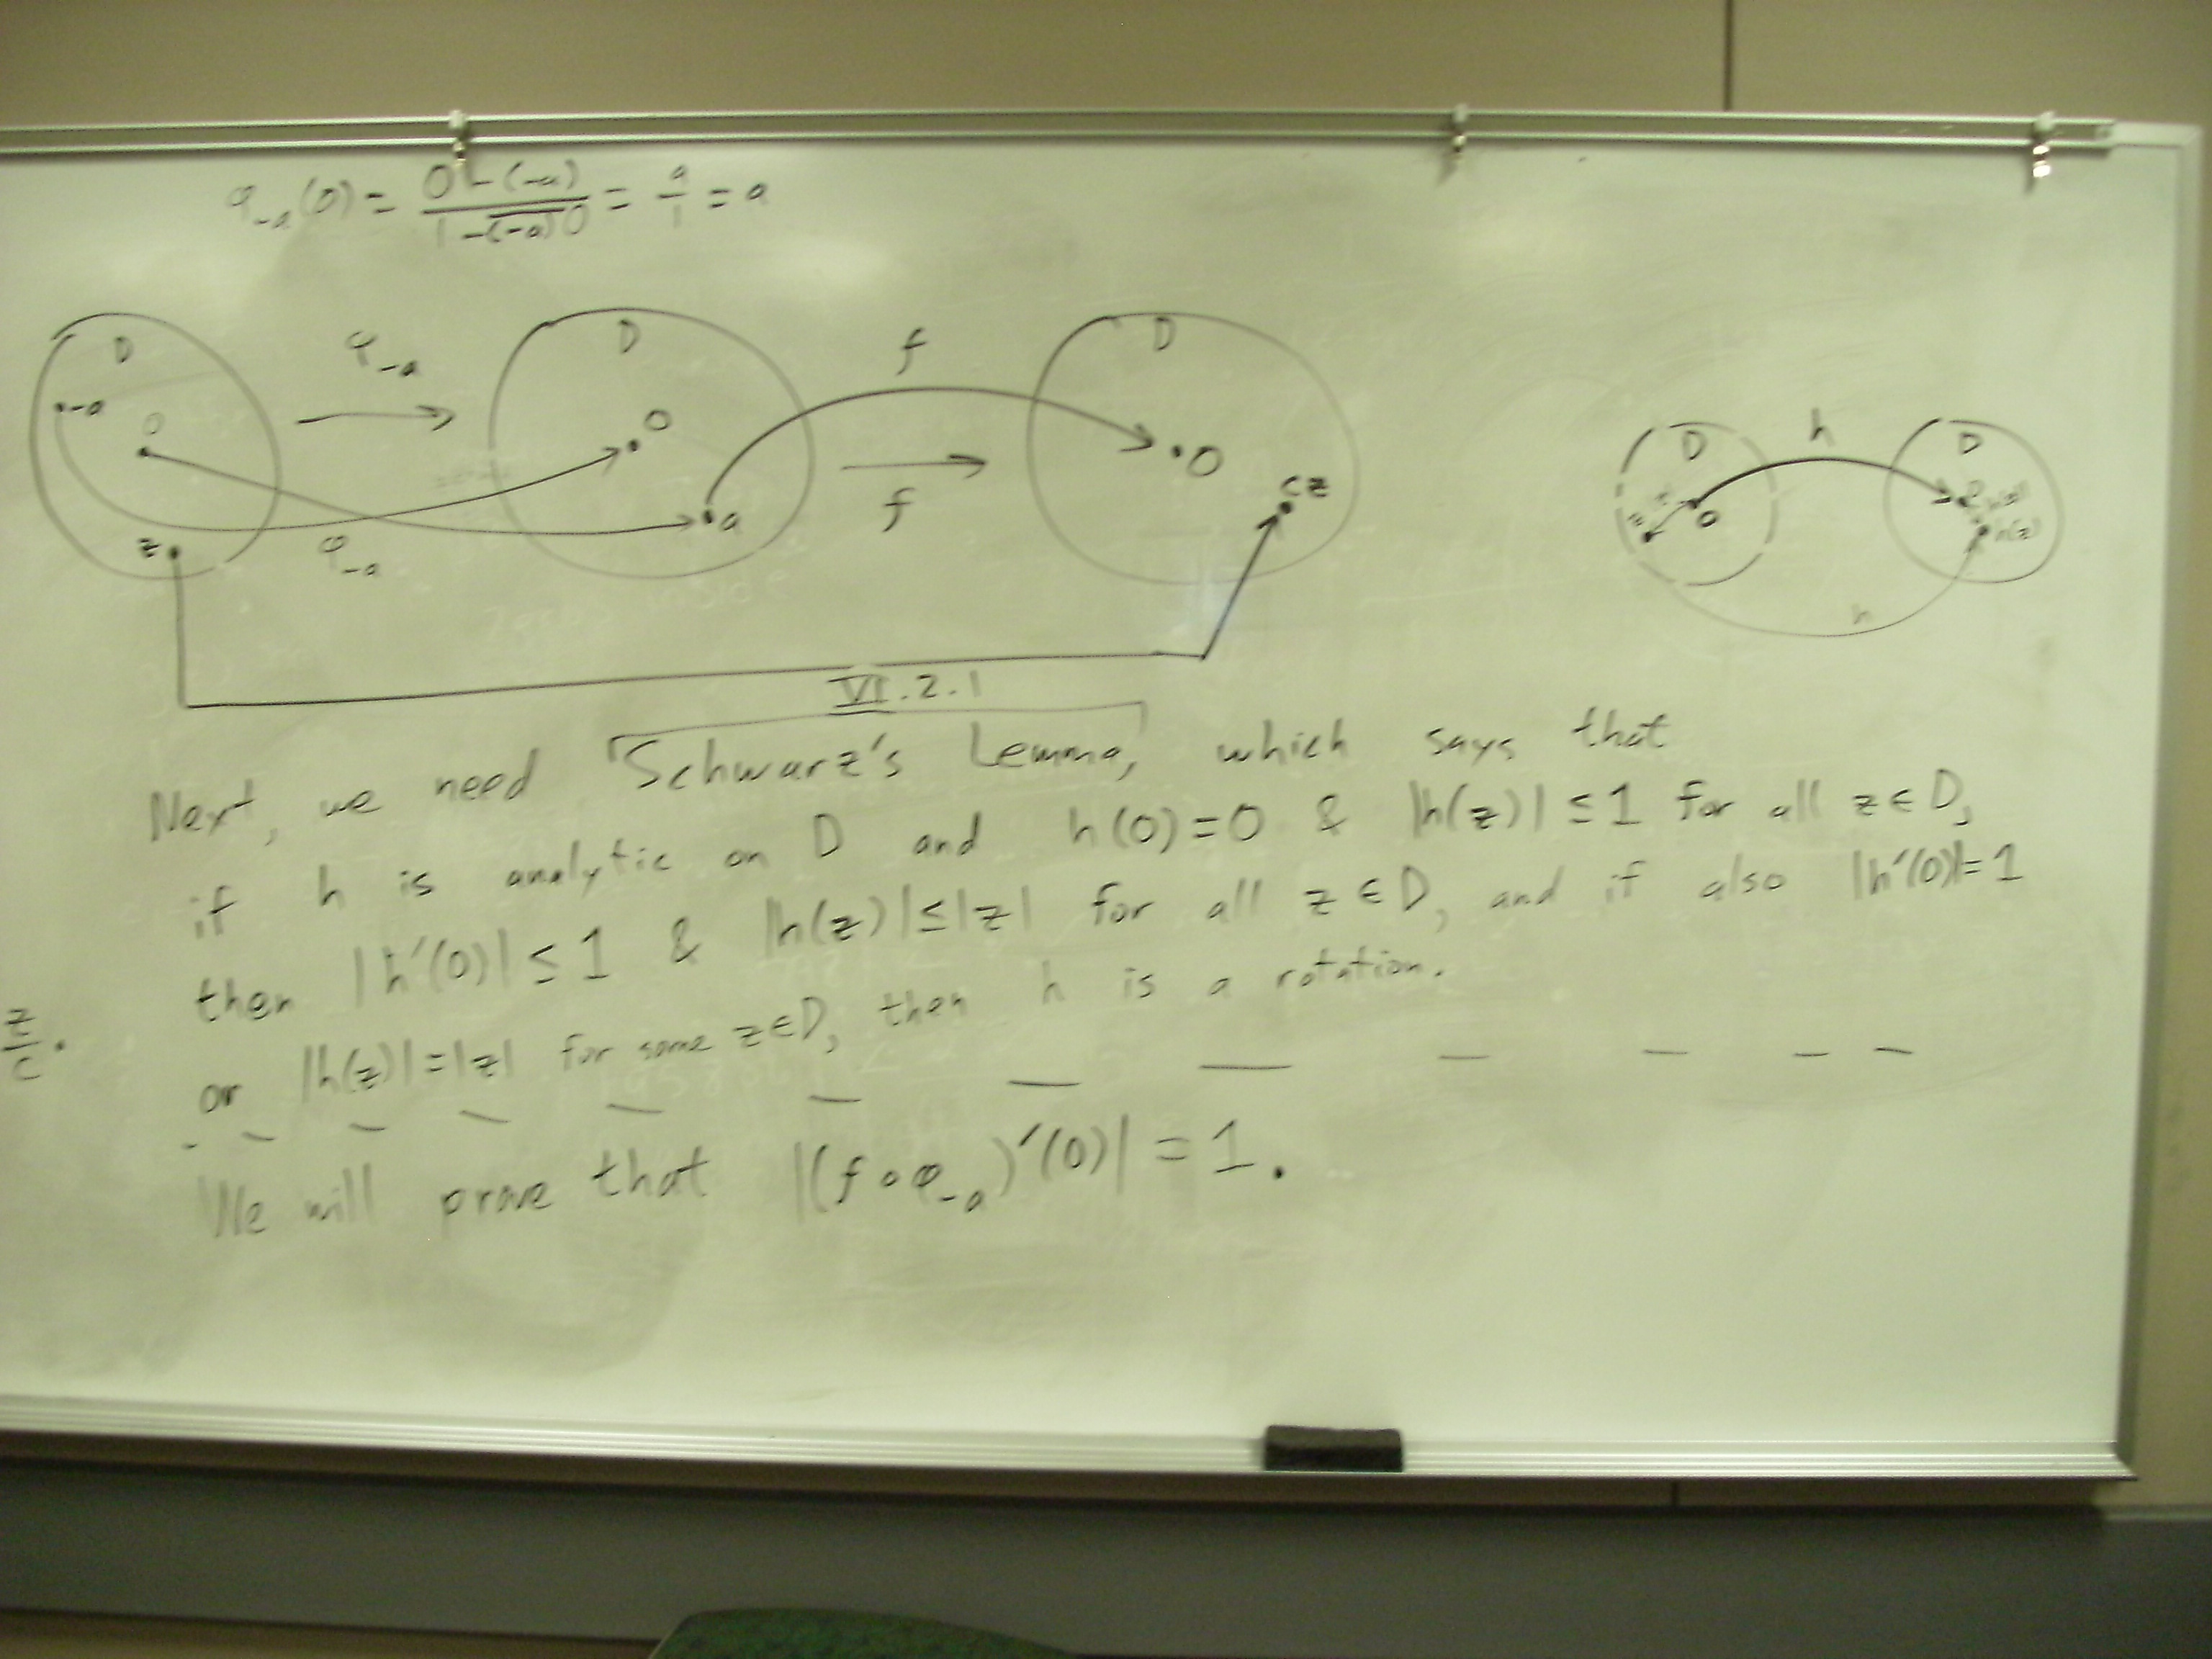 φ₋ₐ(0) = (0-(-a))/(1-\overline{(-a)}0) = a/1 = a
D
φ₋ₐ
D
f
D
-a
0
0
0
cz
a
f
z
φ₋ₐ
h
D
D
0
h(z)
h
VI.2.1
Next, we need Schwarz's Lemma, which says that
if h is analytic on D and h(0)=0 & |h(z)|≤1 for all z∈D,
then |h'(0)|≤1 & |h(z)|≤|z| for all z∈D, and if also |h'(0)|=1
or |h(z)|=|z| for some z∈D, then h is a rotation.
z/c.
We will prove that |(f∘φ₋ₐ)'(0)| = 1.